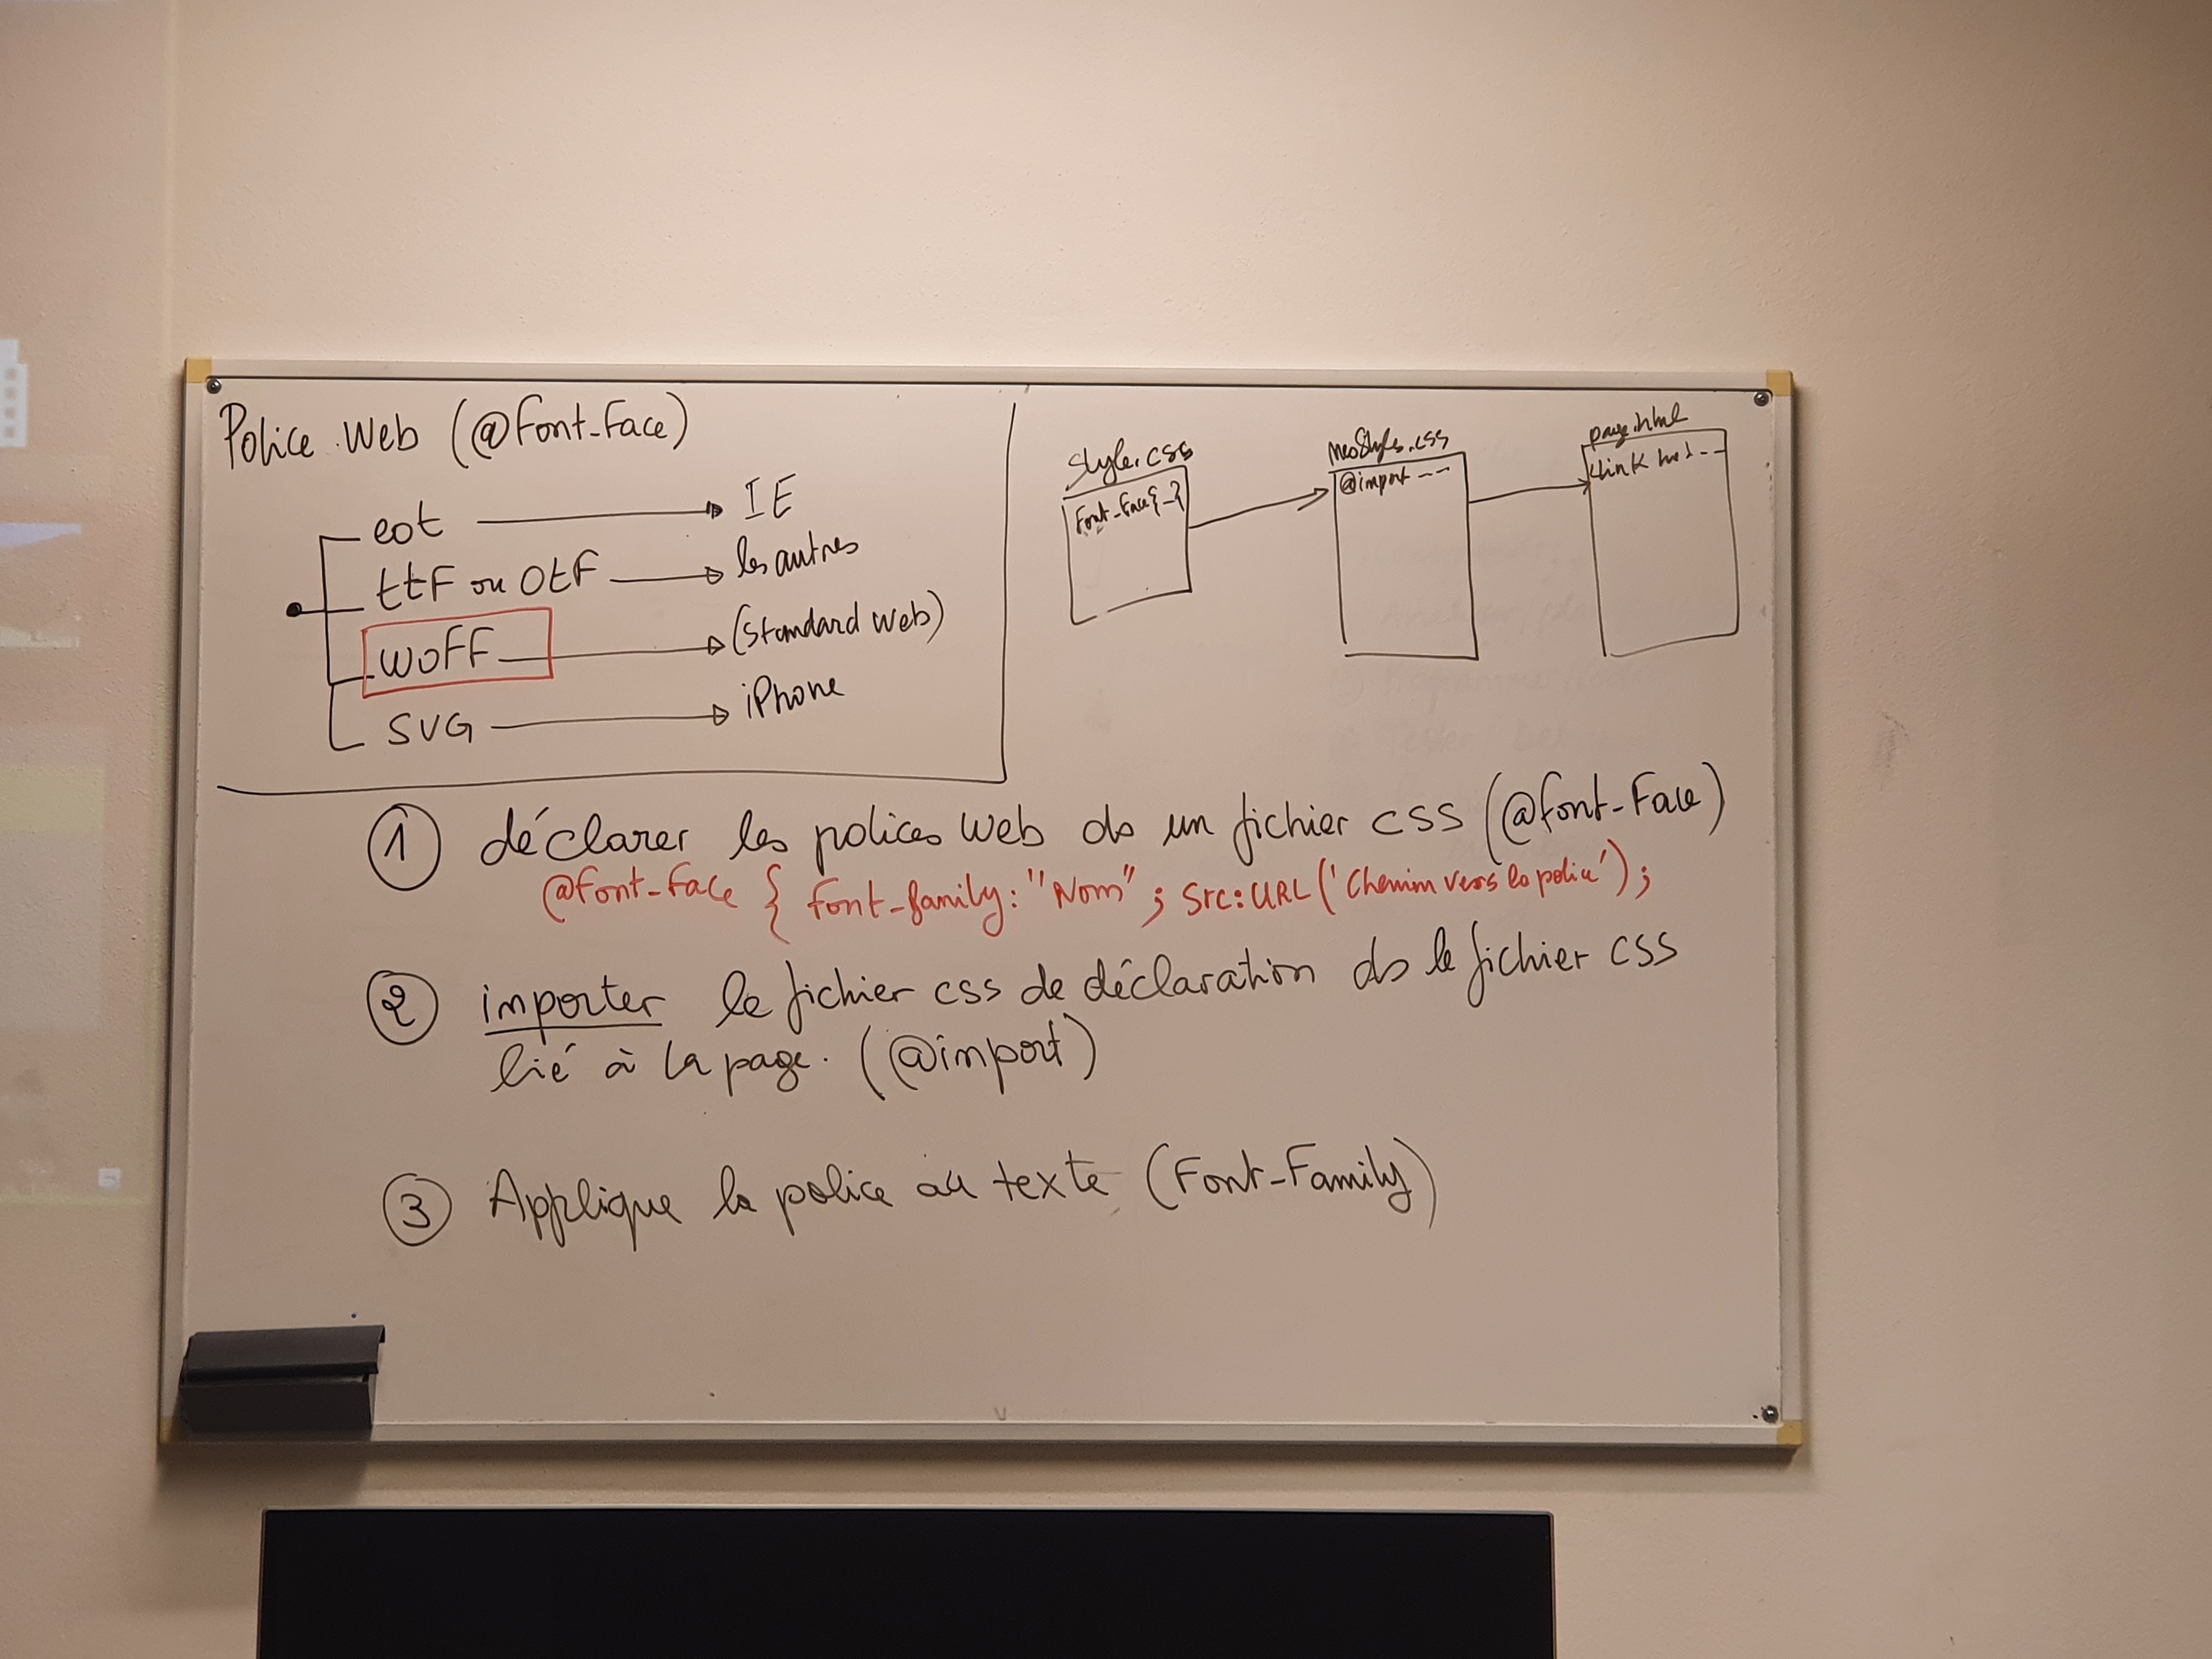 Police Web (@Font-Face)
eot → IE
ttF ou OtF → les autres
WOFF → (Standard Web)
SVG → iPhone
Style.css
Font-Face{_}
mesStyles.css
@import ---
page.html
<link
① déclarer les polices Web ds un fichier CSS (@font-Face)
@Font-Face { Font-family: "Nom" ; Src: URL ('Chemin vers la police');
② importer le fichier css de déclaration ds le fichier CSS
lié à la page. (@import)
③ Applique la police au texte (Font-Family)